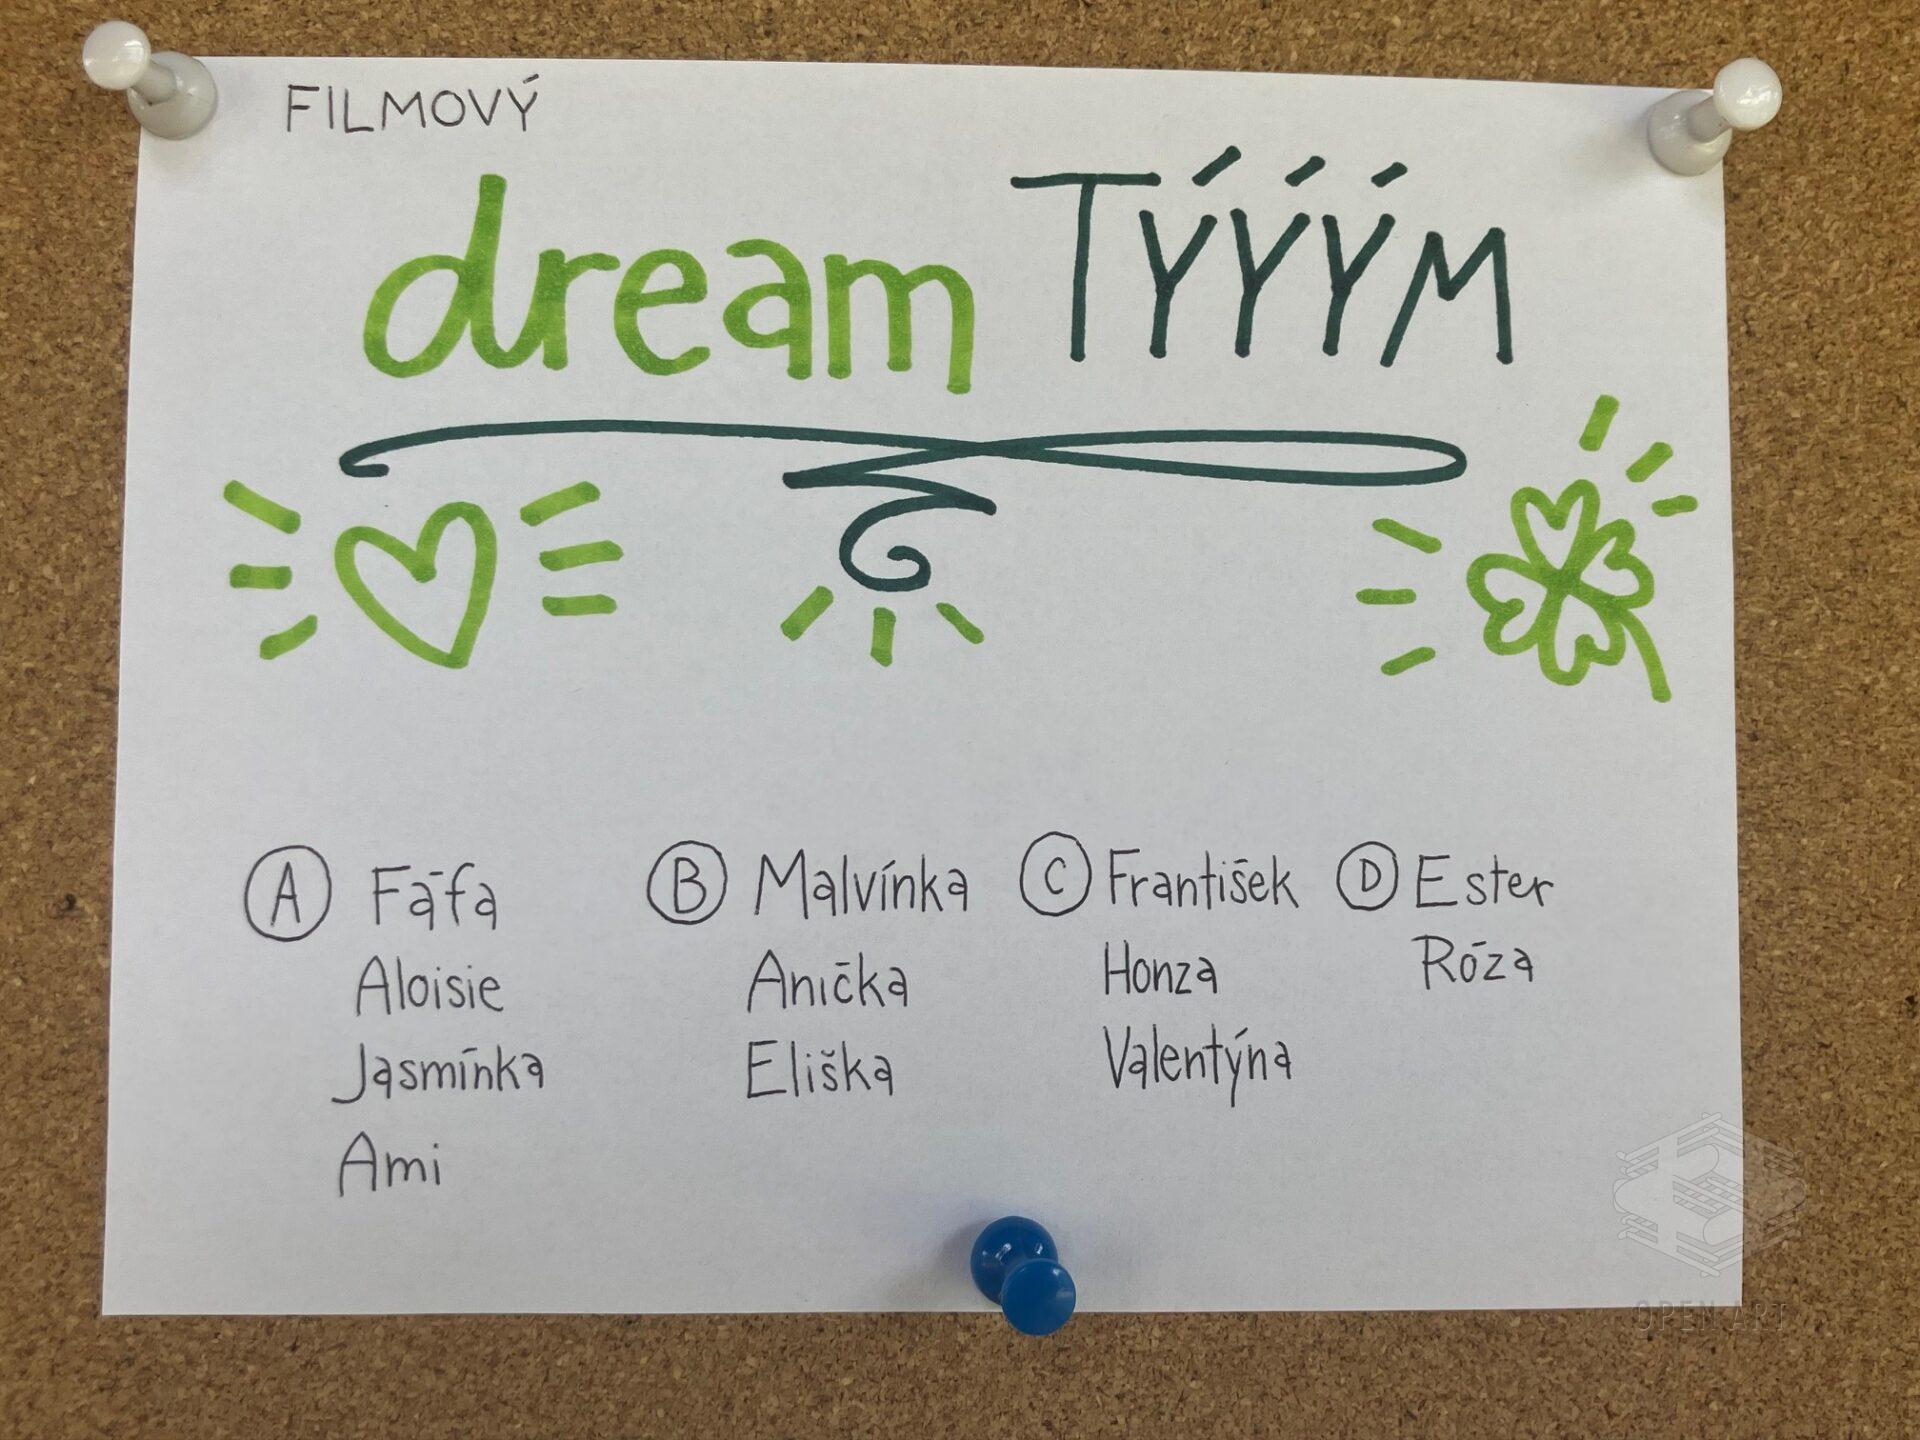 FILMOVÝ
dream TÝÝÝM
A Fáfa
Aloisie
Jasmínka
Ami
B Malvínka
Anička
Eliška
C František
Honza
Valentýna
D Ester
Róza
OPEN ART